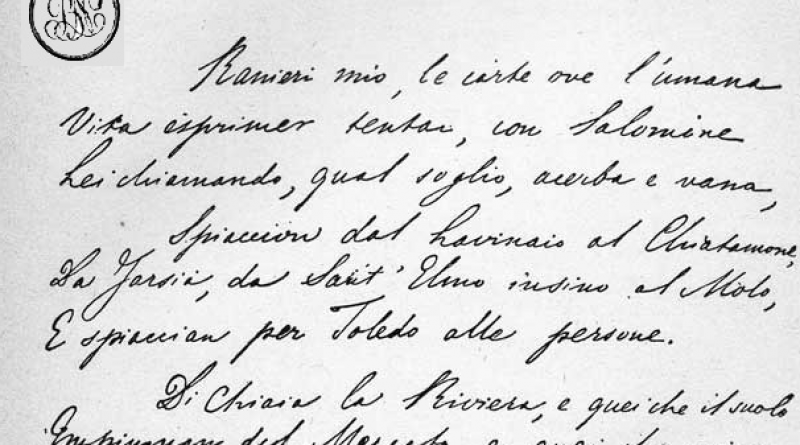 Ranieri mio, le carte ove l'umana
Vita esprimer tentai, con Salomone
Lei chiamando, qual soglio, acerba e vana,
Spiaccion dal Lavinaio al Chiatamone,
Da Tarsia, da Sant'Elmo insino al Molo,
E spiaccion per Toledo alle persone.
Di Chiaia la Riviera, e quei che il suolo
del Mercato